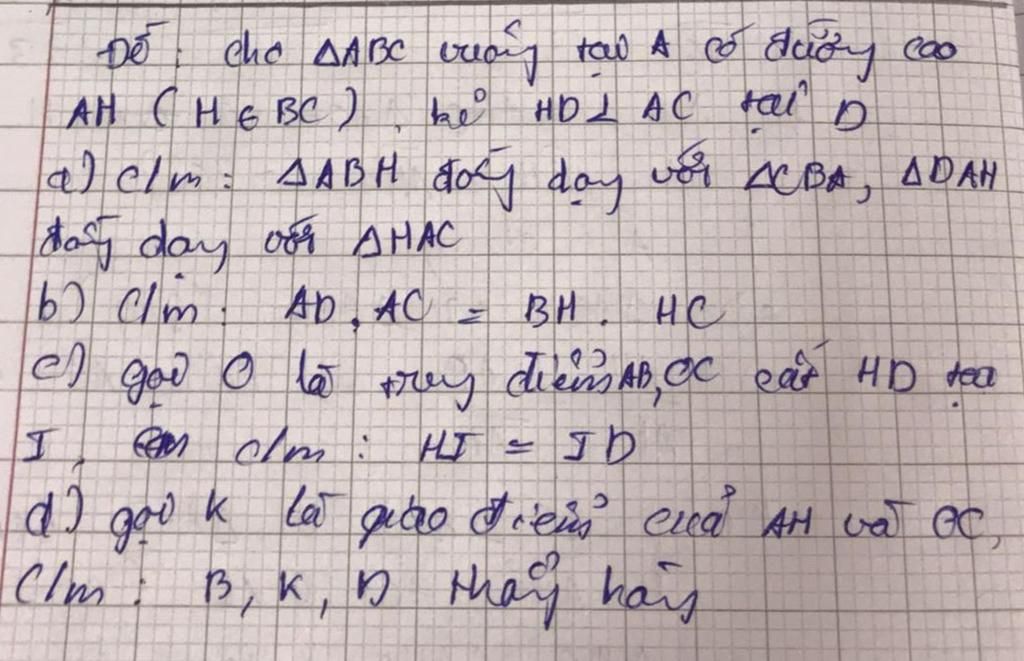 Đề : cho ΔABC vuông tại A có đường cao
AH ( H ∈ BC ) , kẻ HD ⊥ AC tại D
a) c/m : ΔABH đồng dạng với ΔCBA, ΔDAH
đồng dạng với ΔHAC
b) C/m : AD . AC = BH . HC
c) gọi O là trung điểm AB, OC cắt HD tại
I , c/m : HI = ID
d) gọi K là giao điểm của AH và OC,
C/m : B, K, D thẳng hàng